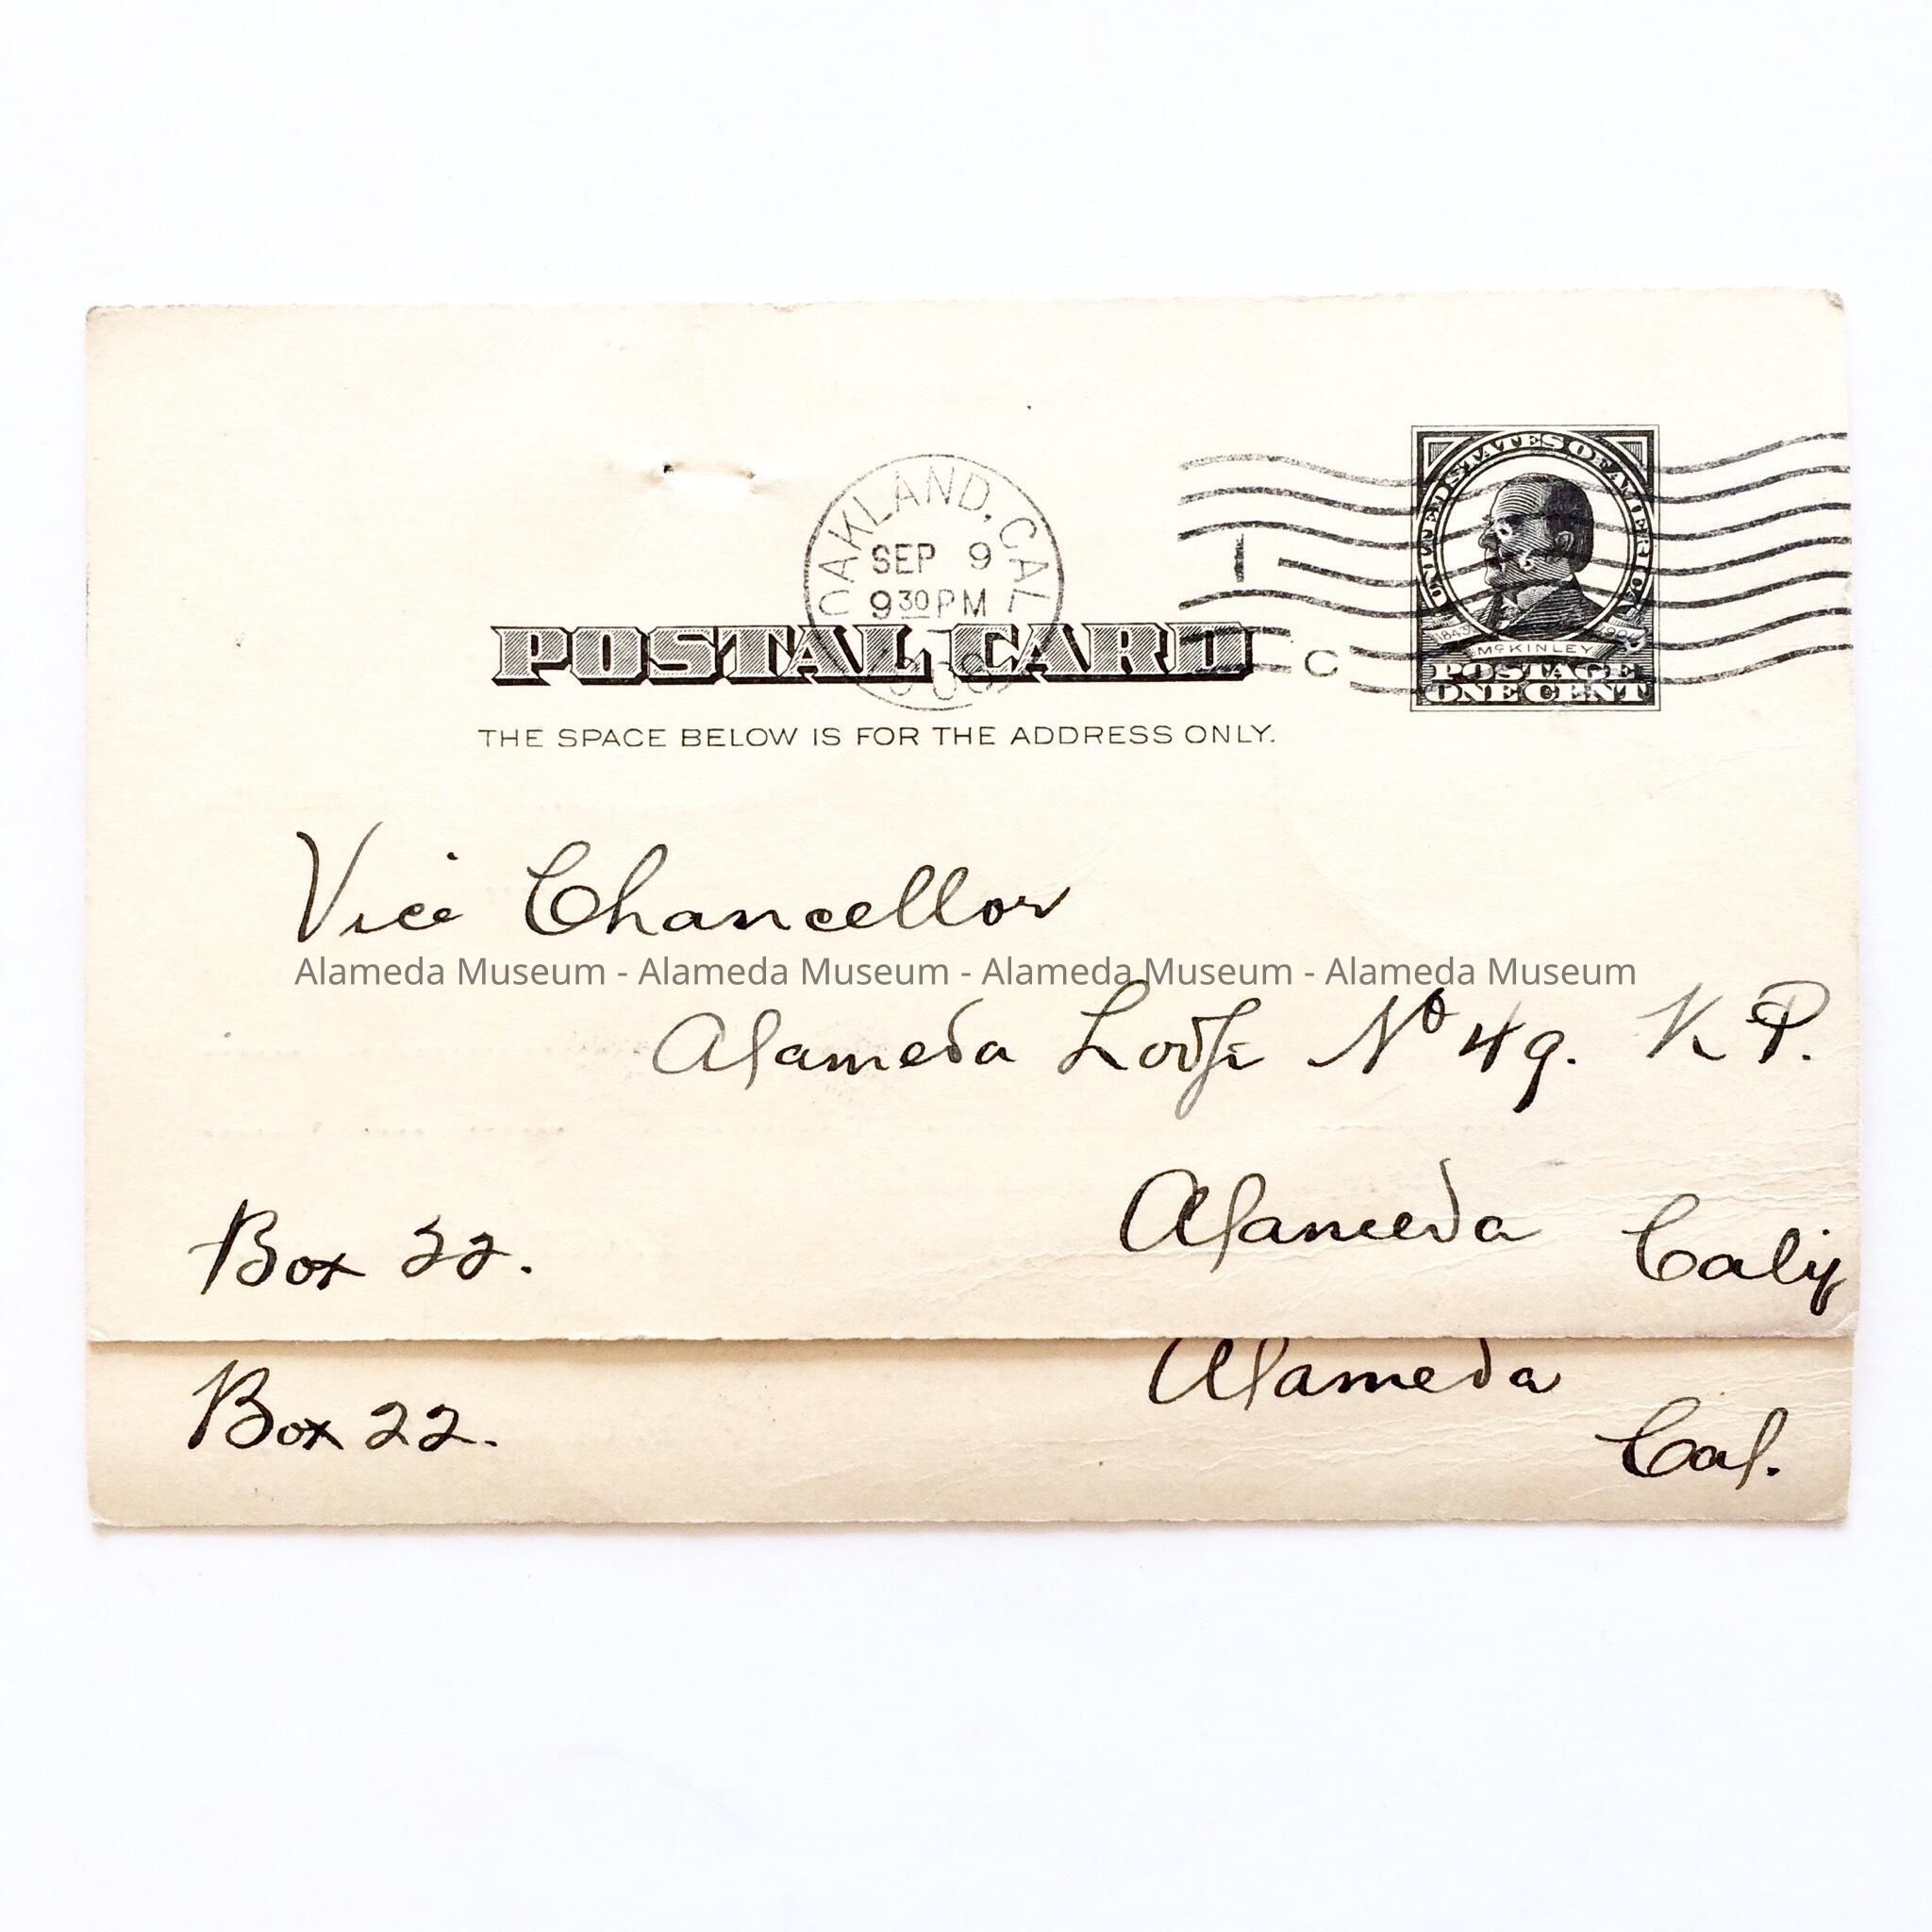 OAKLAND, CAL
SEP 9
9 30 PM
1
C
UNITED STATES OF AMERICA
1843
McKINLEY
POSTAGE
ONE CENT
POSTAL CARD
THE SPACE BELOW IS FOR THE ADDRESS ONLY.
Vice Chancellor
Alameda Museum - Alameda Museum - Alameda Museum - Alameda Museum
Alameda Lodge No 49. K P.
Alameda Calif
Box 22.
Alameda
Box 22.
Cal.